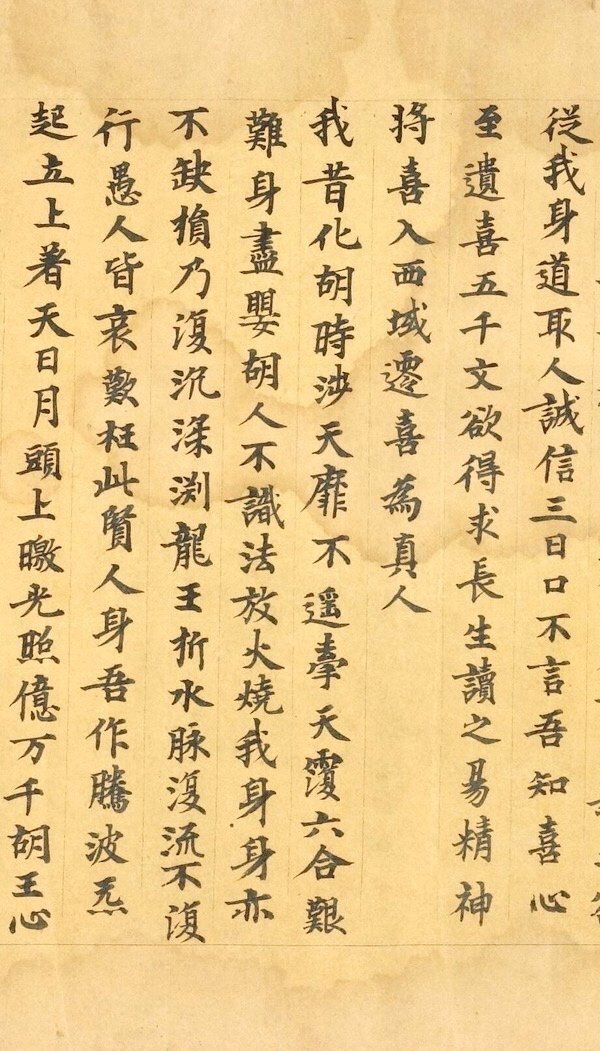 從我身道取人誠信三日口不言吾知喜心
至遺喜五千文欲得求長生讀之易精神
將喜入西域遷喜為真人
我昔化胡時涉天靡不遥牽天覆六合艱
難身盡嬰胡人不識法放火燒我身身亦
不缺損乃復沉深渕龍王折水脉復流不復
行愚人皆哀歎枉此賢人身吾作騰波炁
起立上著天日月頭上曒光照億万千胡王心